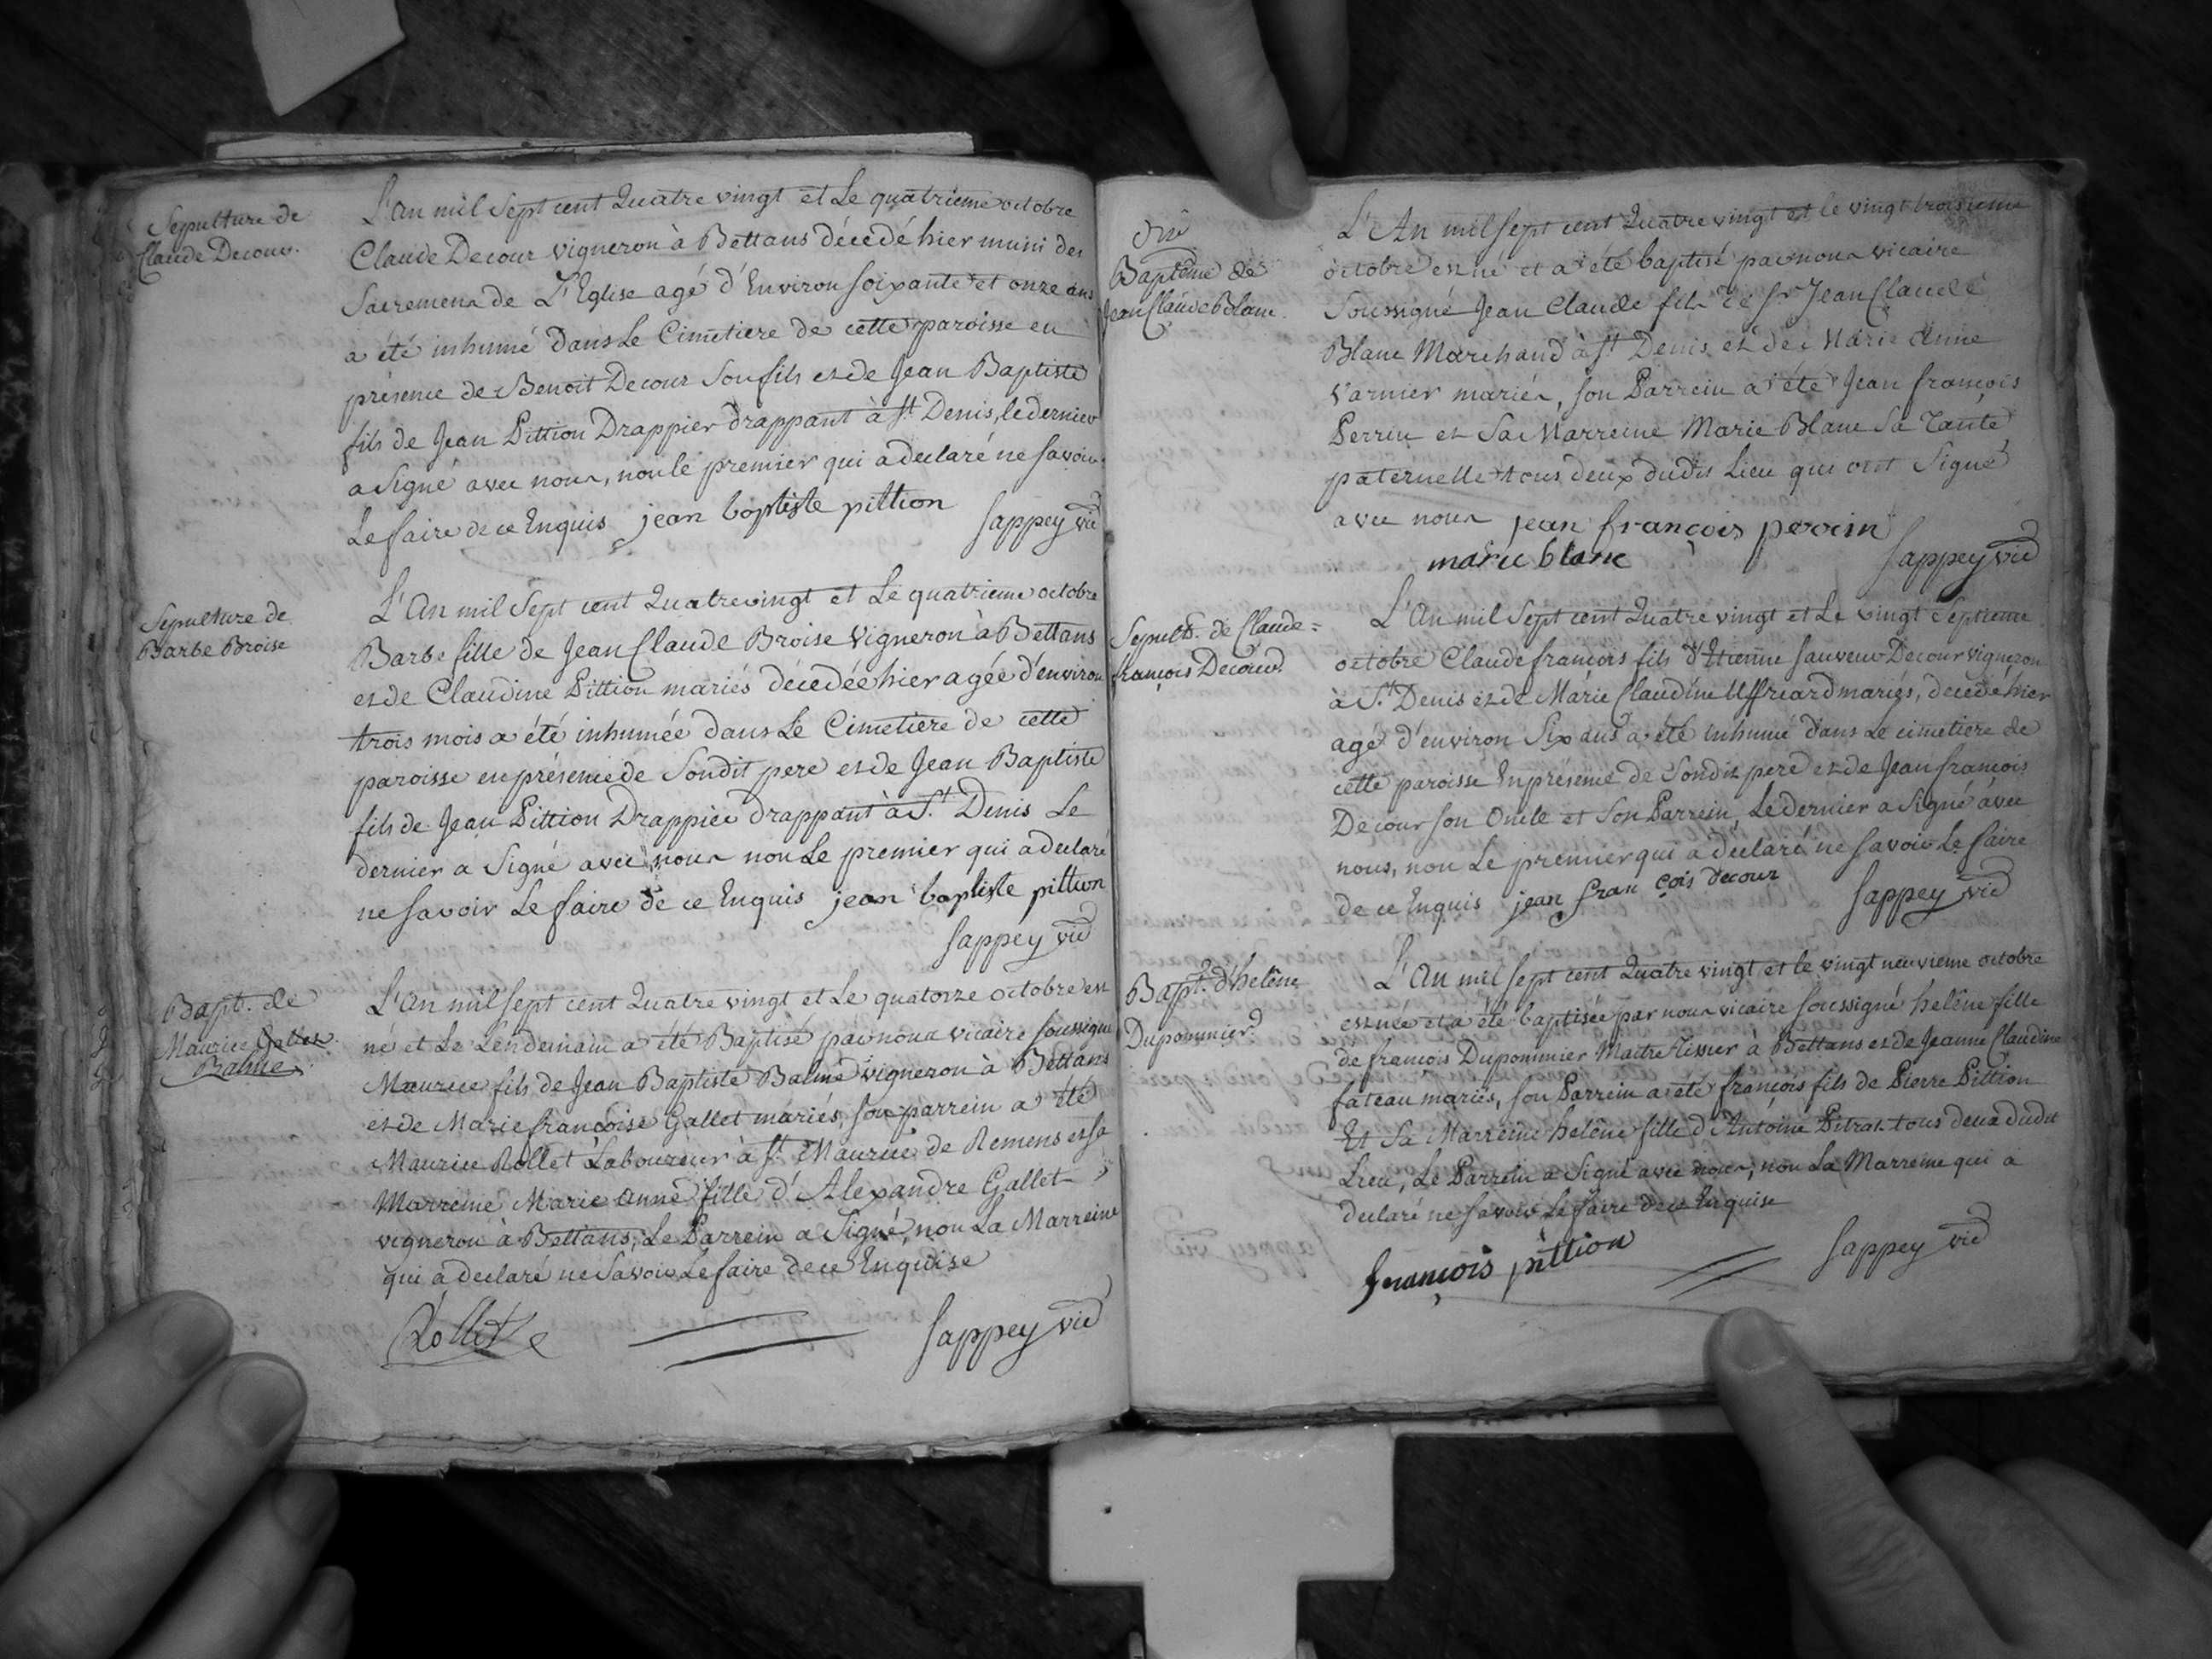 Sepulture de
Claude Decour.
L'An mil Sept cent Quatre vingt et Le quatrieme octobre
Claude Decour vigneron à Bettans décedé hier muni des
Sacremens de L'Eglise agé d'Environ soixante et onze ans
a été inhumé dans Le Cimetiere de cette paroisse en
présence de Benoit Decour Son fils et de Jean Baptiste
fils de Jean Pittion Drappier drappant à St Denis, le dernier
a Signé avec nous, non le premier qui a declaré ne savoir
Le faire de ce Enquis jean baptiste pittion
sappey vic
Sepulture de
Barbe Broise
L'An mil Sept cent Quatre vingt et Le quatrieme octobre
Barbe fille de Jean Claude Broise Vigneron à Bettans
et de Claudine Pittion mariés décedée hier agée d'environ
trois mois a été inhumée dans Le Cimetiere de cette
paroisse en présence de Sondit pere et de Jean Baptiste
fils de Jean Pittion Drappier drappant à St. Denis Le
dernier a Signé avec nous non Le premier qui a declaré
ne savoir Le faire de ce Enquis jean baptiste pittion
sappey vic
Bapt. de
Maurice Gallet
Balme
L'An mil sept cent Quatre vingt et Le quatorze octobre est
né et Le Lendemain a été Baptisé par nous vicaire soussigné
Maurice fils de Jean Baptiste Balme vigneron à Bettans
et de Marie françoise Gallet mariés, son parrein a été
Maurice Rollet Laboureur à St Maurice de Remens et sa
Marreine Marie Anne fille d'Alexandre Gallet
vigneron à Bettans, Le Parrein a Signé, non La Marreine
qui a declaré ne Savoir Le faire de ce Enquise
Rollet
sappey vic
Baptême de
Jean Claude Blanc.
L'An mil sept cent Quatre vingt et le vingt troisieme
octobre est né et a été baptisé par nous vicaire
Soussigné Jean Claude fils de Sr Jean Claude
Blanc Marchand à St Denis et de Marie Anne
Varnier mariés, son Parrein a été Jean françois
Perrin et Sa Marreine Marie Blanc Sa Tante
paternelle tous deux dudit Lieu qui ont Signé
avec nous jean françois perrin
marie blanc
sappey vic
Sepult. de Claude=
françois Decour.
L'An mil Sept cent Quatre vingt et Le vingt Septieme
octobre Claude françois fils d'Etienne sauveur Decour vigneron
à St. Denis et de Marie Claudine Uffreard mariés, decedé hier
agé d'environ Six ans a été inhumé dans Le cimetiere de
cette paroisse En présence de Sondit pere et de Jean françois
Decour son Oncle et Son Parrein, Le dernier a Signé avec
nous, non Le premier qui a declaré ne savoir Le faire
de ce Enquis jean françois decour
sappey vic
Bapt. d'helêne
Dupommier
L'An mil sept cent Quatre vingt et le vingt neuvieme octobre
est née et a été baptisée par nous vicaire soussigné helêne fille
de françois Dupommier Maitre Tissier à Bettans et de Jeanne Claudine
fateau mariés, son Parrein a été françois fils de Pierre Pittion
Et Sa Marreine helêne fille d'Antoine Pitrat tous deux dudit
Lieu, Le Parrein a Signé avec nous, non La Marreine qui a
declaré ne savoir Le faire de ce Enquise
françois pittion
sappey vic